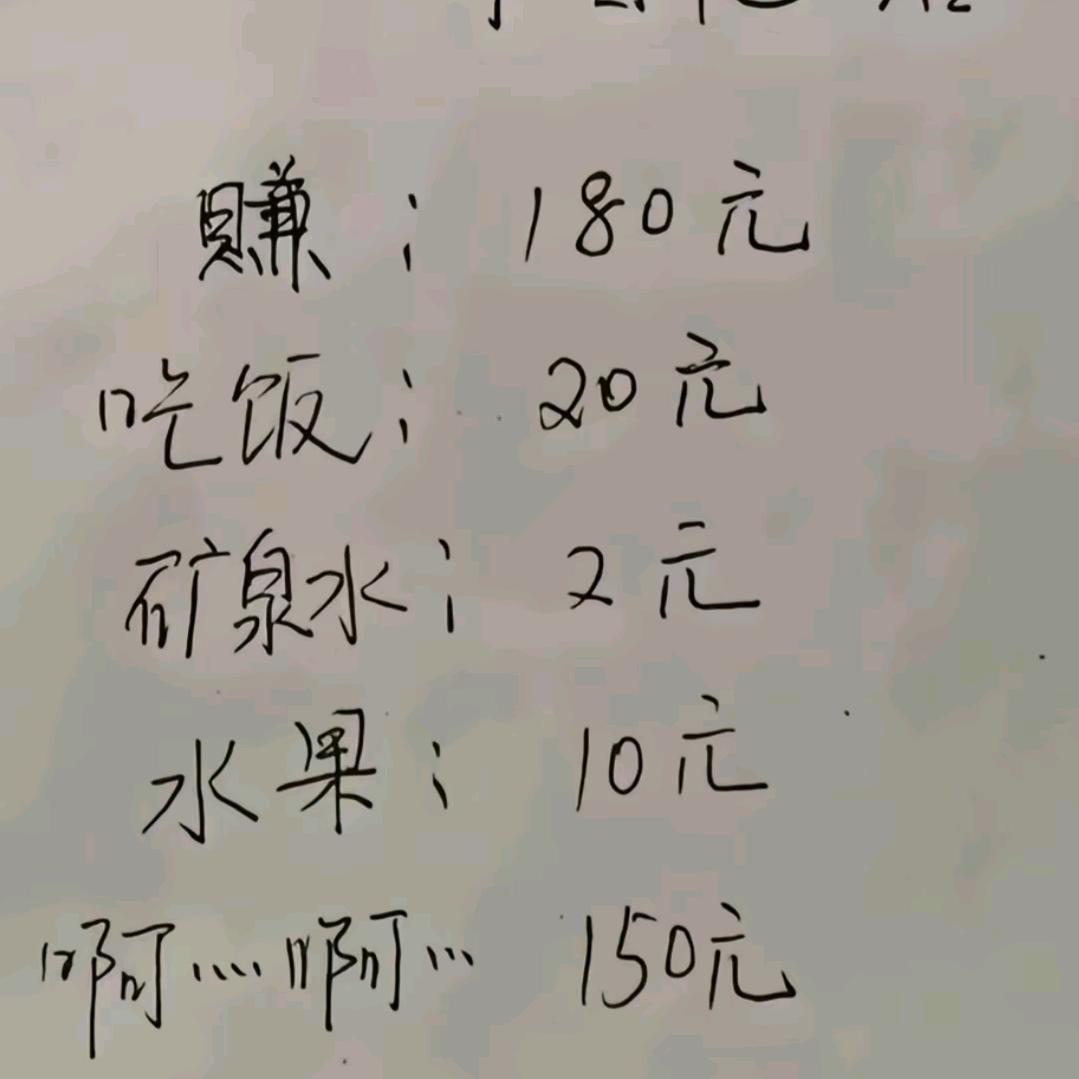 賺：180元
吃饭：20元
矿泉水：2元
水果：10元
啊……啊… 150元